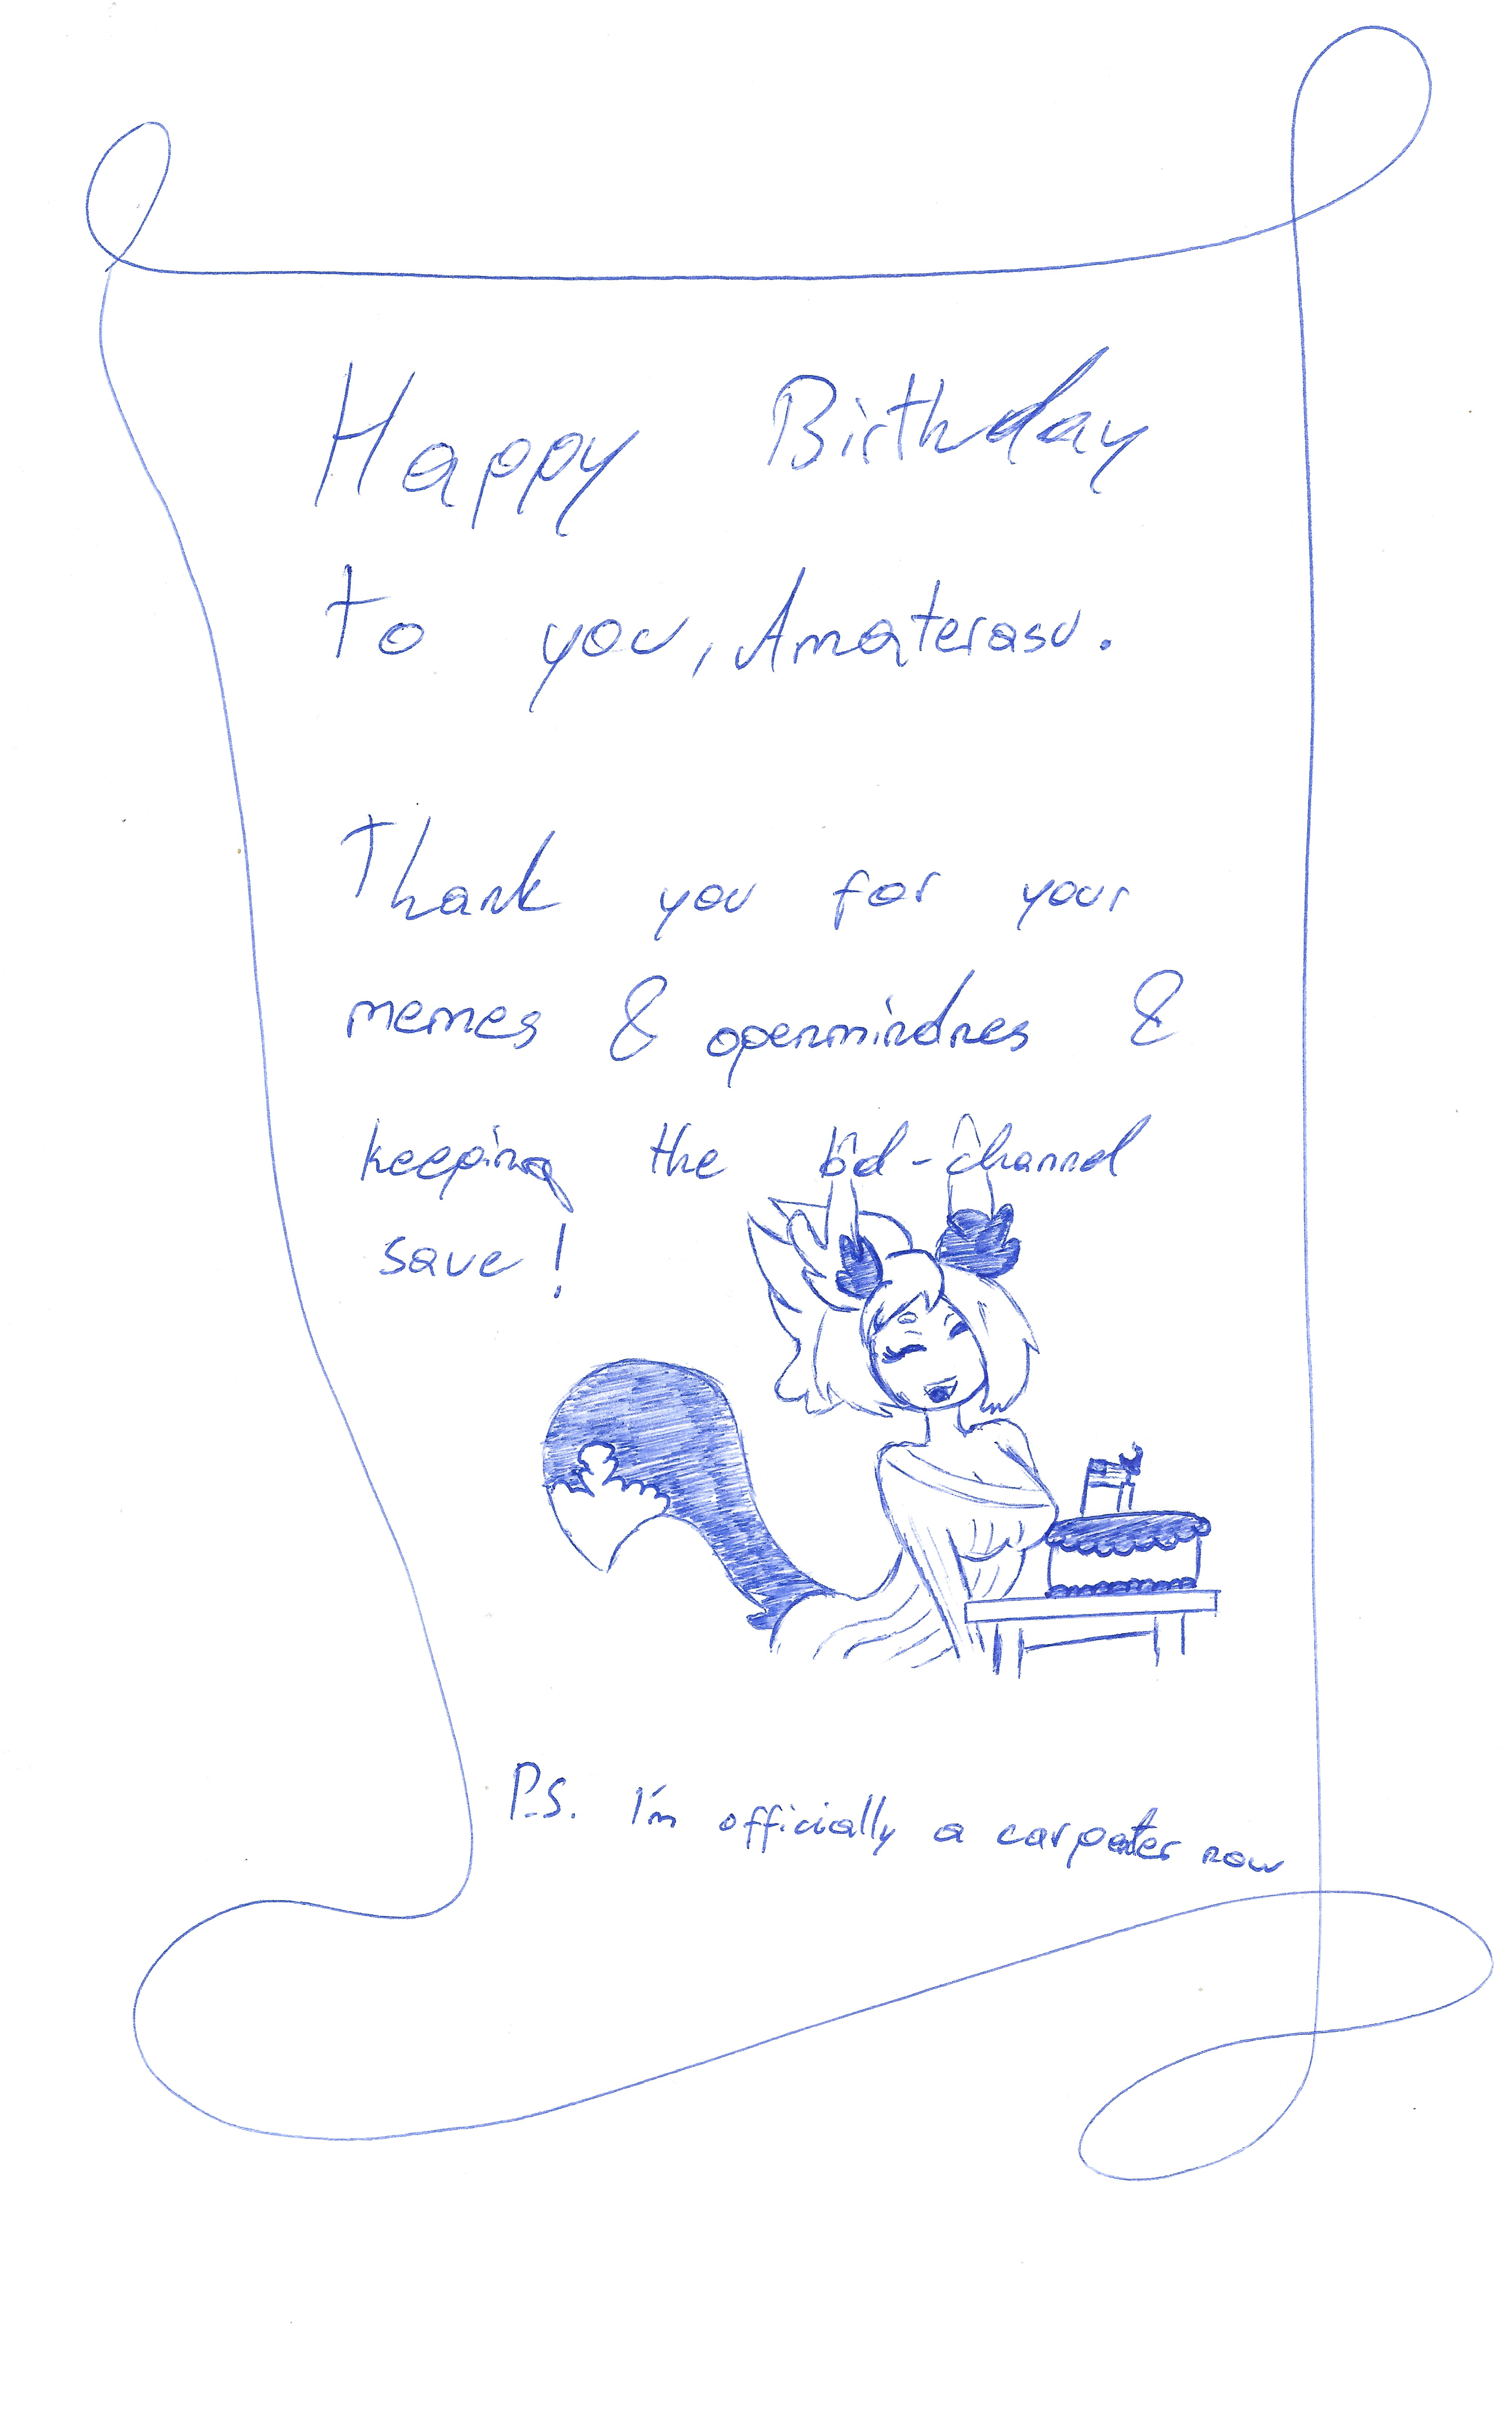 Happy Birthday
to you, Amaterasu.
Thank you for your
memes & openmindnes &
keeping the bd-channel
save!
P.S. I'm officially a carpenter now